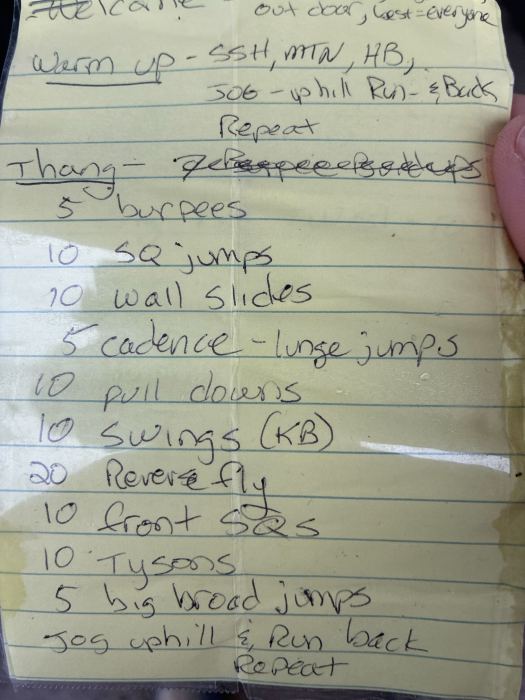 Welcome out door, best = everyone
Warm up - SSH, MTN, HB,
JOG - uphill Run - & Back
Repeat
Thang -
5 burpees
10 SQ jumps
10 wall slides
5 cadence - lunge jumps
10 pull downs
10 swings (KB)
20 Reverse fly
10 front SQs
10 Tysons
5 big broad jumps
Jog uphill & Run back
Repeat